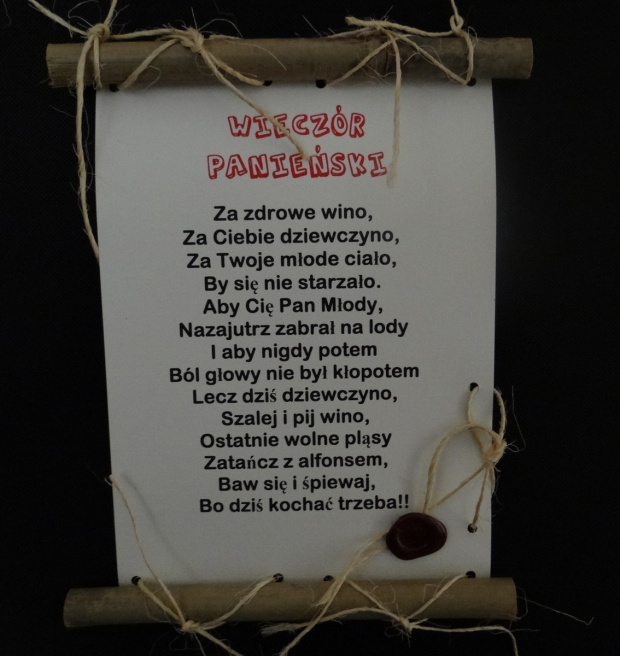 WIECZÓR
PANIEŃSKI
Za zdrowe wino,
Za Ciebie dziewczyno,
Za Twoje młode ciało,
By się nie starzało.
Aby Cię Pan Młody,
Nazajutrz zabrał na lody
I aby nigdy potem
Ból głowy nie był kłopotem
Lecz dziś dziewczyno,
Szalej i pij wino,
Ostatnie wolne pląsy
Zatańcz z alfonsem,
Baw się i śpiewaj,
Bo dziś kochać trzeba!!